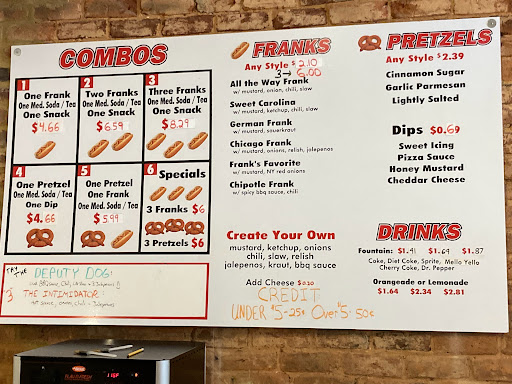 COMBOS
1
One Frank
One Med. Soda / Tea
One Snack
$4.66
2
Two Franks
One Med. Soda / Tea
One Snack
$6.59
3
Three Franks
One Med. Soda / Tea
One Snack
$8.29
4
One Pretzel
One Med. Soda / Tea
One Dip
$4.66
5
One Pretzel
One Frank
One Med. Soda / Tea
$5.99
6
Specials
3 Franks $6
3 Pretzels $6
TRY THE
DEPUTY DOG!
THE INTIMIDATOR
FRANKS
Any Style $2.10
3→ 6.00
All the Way Frank
w/ mustard, onion, chili, slaw
Sweet Carolina
w/ mustard, ketchup, chili, slaw
German Frank
w/ mustard, sauerkraut
Chicago Frank
w/ mustard, onions, relish, jalepenos
Frank's Favorite
w/ mustard, NY red onions
Chipotle Frank
w/ spicy bbq sauce, chili
Create Your Own
mustard, ketchup, onions
chili, slaw, relish
jalepenos, kraut, bbq sauce
Add Cheese $0.30
CREDIT
UNDER $5-25¢ Over $5-50¢
PRETZELS
Any Style $2.39
Cinnamon Sugar
Garlic Parmesan
Lightly Salted
Dips $0.69
Sweet Icing
Pizza Sauce
Honey Mustard
Cheddar Cheese
DRINKS
Fountain: $1.41 $1.64 $1.87
Coke, Diet Coke, Sprite, Mello Yello
Cherry Coke, Dr. Pepper
Orangeade or Lemonade
$1.64 $2.34 $2.81